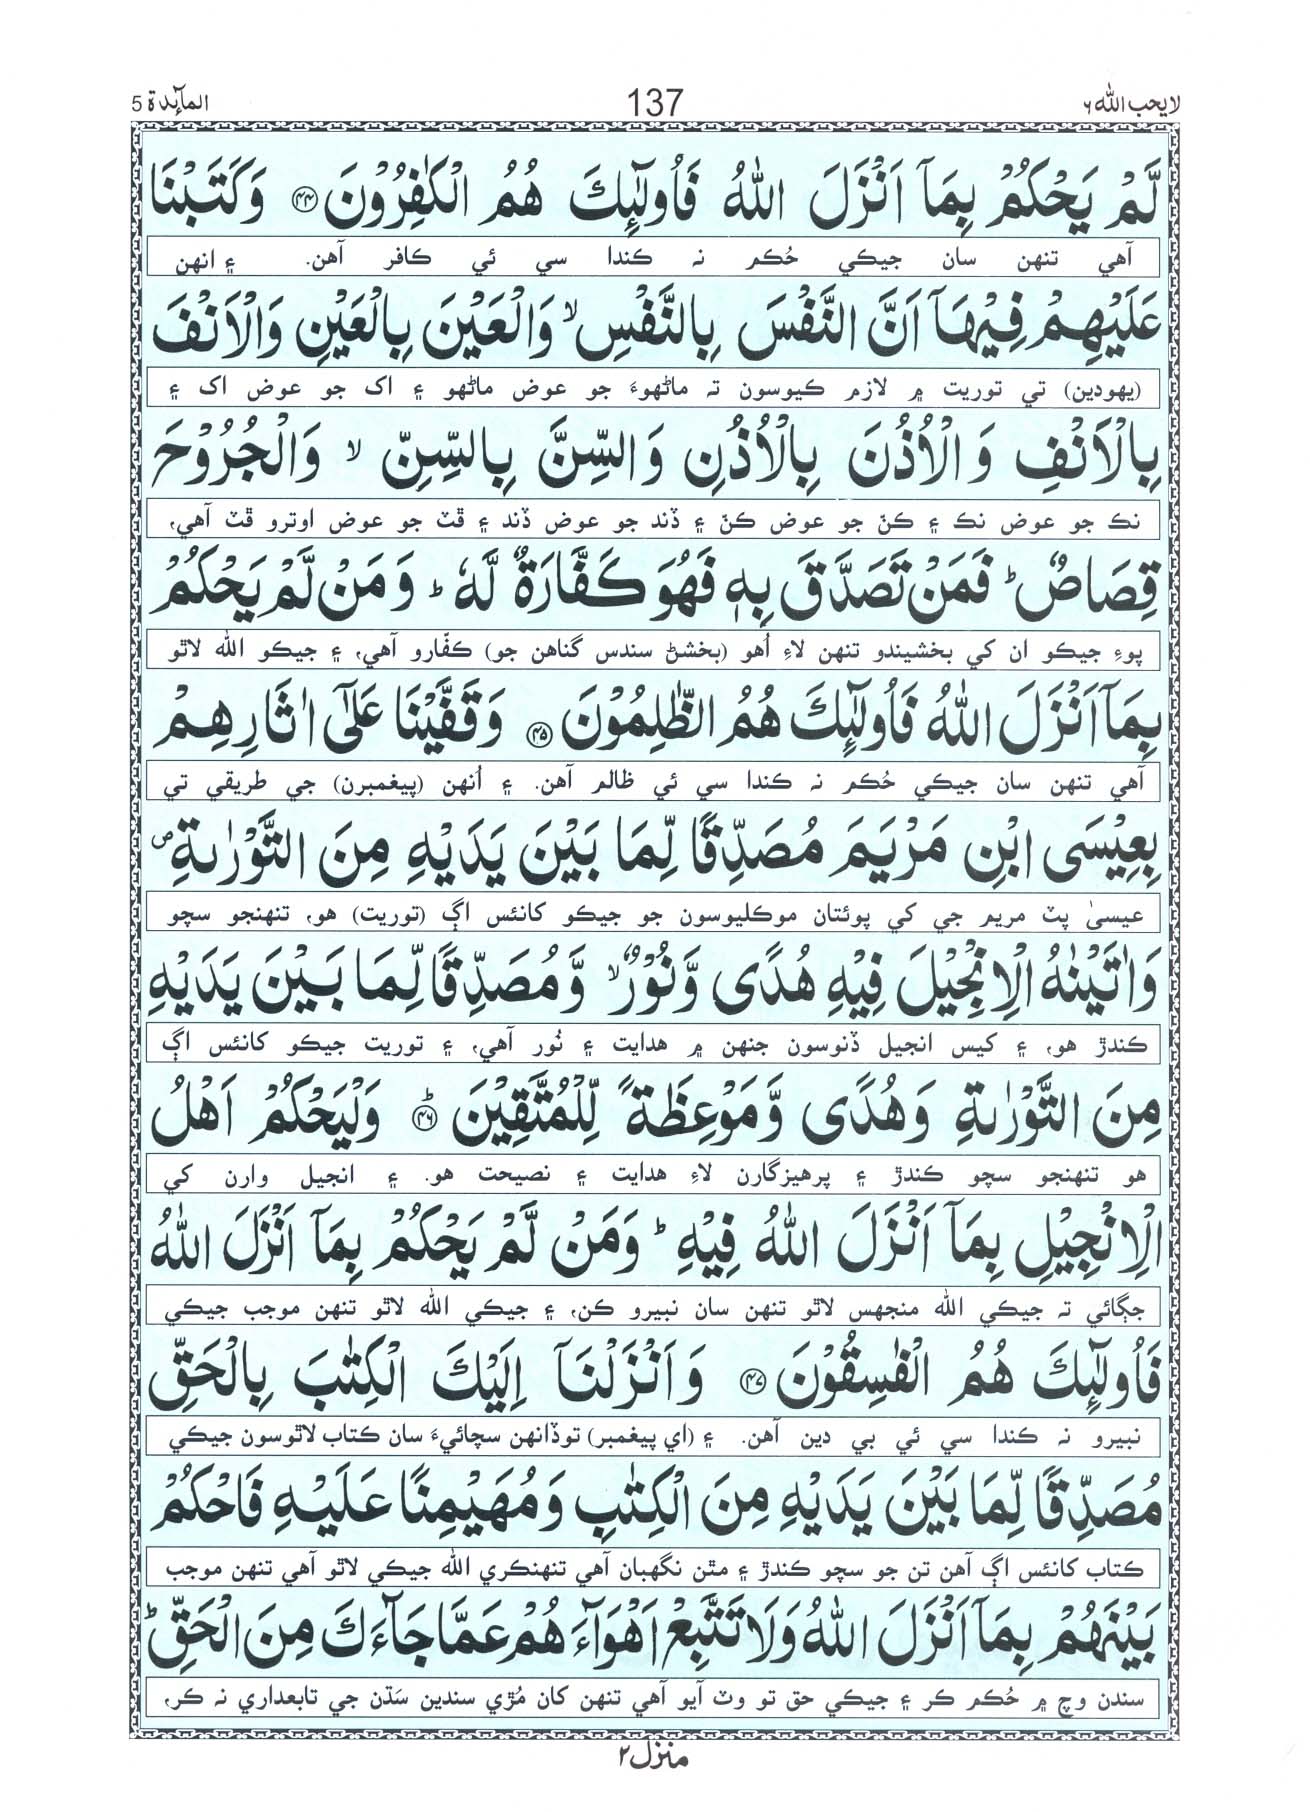 لا يحب الله ٦
137
المآئدة 5
لَّمْ يَحْكُمْ بِمَآ اَنْزَلَ اللّٰهُ فَاُولٰٓئِكَ هُمُ الْكٰفِرُوْنَ ﴿۴۴﴾ وَكَتَبْنَا
آهي تنهن سان جيڪي حُڪم نہ ڪندا سي ئي ڪافر آهن. ۽ انهن
عَلَيْهِمْ فِيْهَآ اَنَّ النَّفْسَ بِالنَّفْسِ ۙ وَالْعَيْنَ بِالْعَيْنِ وَالْاَنْفَ
(يهودين) تي توريت ۾ لازم ڪيوسون تہ ماڻهوءَ جو عوض ماڻهو ۽ اک جو عوض اک ۽
بِالْاَنْفِ وَ الْاُذُنَ بِالْاُذُنِ وَ السِّنَّ بِالسِّنِّ ۙ وَالْجُرُوْحَ
نڪ جو عوض نڪ ۽ ڪنّ جو عوض ڪنّ ۽ ڏند جو عوض ڏند ۽ ڦٽ جو عوض اوترو ڦٽ آهي،
قِصَاصٌ ؕ فَمَنْ تَصَدَّقَ بِهٖ فَهُوَ كَفَّارَةٌ لَّهٗ ؕ وَ مَنْ لَّمْ يَحْكُمْ
پوءِ جيڪو ان کي بخشيندو تنهن لاءِ اُهو (بخشڻ سندس گناهن جو) ڪفّارو آهي، ۽ جيڪو الله لاٿو
بِمَآ اَنْزَلَ اللّٰهُ فَاُولٰٓئِكَ هُمُ الظّٰلِمُوْنَ ﴿۴۵﴾ وَقَفَّيْنَا عَلٰٓى اٰثَارِهِمْ
آهي تنهن سان جيڪي حُڪم نہ ڪندا سي ئي ظالم آهن. ۽ اُنهن (پيغمبرن) جي طريقي تي
بِعِيْسَى ابْنِ مَرْيَمَ مُصَدِّقًا لِّمَا بَيْنَ يَدَيْهِ مِنَ التَّوْرٰىةِ ۪
عيسىٰ پٽ مريم جي کي پوئتان موڪليوسون جو جيڪو کانئس اڳ (توريت) هو، تنهنجو سچو
وَاٰتَيْنٰهُ الْاِنْجِيْلَ فِيْهِ هُدًى وَّنُوْرٌ ۙ وَّمُصَدِّقًا لِّمَا بَيْنَ يَدَيْهِ
ڪندڙ هو، ۽ کيس انجيل ڏنوسون جنهن ۾ هدايت ۽ نُور آهي، ۽ توريت جيڪو کانئس اڳ
مِنَ التَّوْرٰىةِ وَهُدًى وَّمَوْعِظَةً لِّلْمُتَّقِيْنَ ﴿۴۶﴾ؕ وَلْيَحْكُمْ اَهْلُ
هو تنهنجو سچو ڪندڙ ۽ پرهيزگارن لاءِ هدايت ۽ نصيحت هو. ۽ انجيل وارن کي
الْاِنْجِيْلِ بِمَآ اَنْزَلَ اللّٰهُ فِيْهِ ؕ وَمَنْ لَّمْ يَحْكُمْ بِمَآ اَنْزَلَ اللّٰهُ
جڳائي تہ جيڪي الله منجهس لاٿو تنهن سان نبيرو ڪن، ۽ جيڪي الله لاٿو تنهن موجب جيڪي
فَاُولٰٓئِكَ هُمُ الْفٰسِقُوْنَ ﴿۴۷﴾ وَاَنْزَلْنَآ اِلَيْكَ الْكِتٰبَ بِالْحَقِّ
نبيرو نہ ڪندا سي ئي بي دين آهن. ۽ (اي پيغمبر) توڏانهن سچائيءَ سان ڪتاب لاٿوسون جيڪي
مُصَدِّقًا لِّمَا بَيْنَ يَدَيْهِ مِنَ الْكِتٰبِ وَمُهَيْمِنًا عَلَيْهِ فَاحْكُمْ
ڪتاب کانئس اڳ آهن تن جو سچو ڪندڙ ۽ مٿن نگهبان آهي تنهنڪري الله جيڪي لاٿو آهي تنهن موجب
بَيْنَهُمْ بِمَآ اَنْزَلَ اللّٰهُ وَلَا تَتَّبِعْ اَهْوَآءَهُمْ عَمَّا جَآءَكَ مِنَ الْحَقِّ ؕ
سندن وچ ۾ حُڪم ڪر ۽ جيڪي حق تو وٽ آيو آهي تنهن کان مُڙي سندين سَڌن جي تابعداري نہ ڪر،
منزل ٢